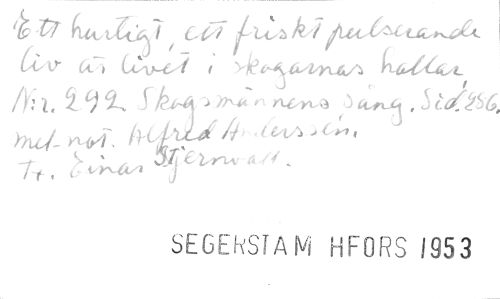 Ett hurtigt, ett friskt pulserande
liv är livet i skogarnas hallar,
N:r. 292. Skogsmännens sång. Sid. 256.
mel-not. Alfred Anderssén.
T. Einar Stjernvall.
SEGERSTAM HFORS 1953